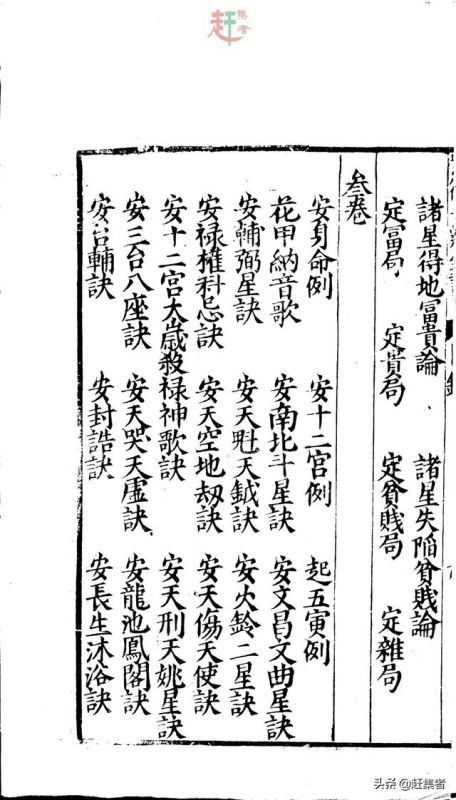 赶集者
諸星得地富貴論 諸星失陷貧賤論
定富局 定貴局 定貧賎局 定雜局
叁卷
安身命例 安十二宫例 起五寅例
花甲納音歌 安南北斗星訣 安文昌文曲星訣
安輔弼星訣 安天魁天鉞訣 安火鈴二星訣
安禄權科忌訣 安天空地劫訣 安天傷天使訣
安十二宫太歲殺禄神歌訣 安天刑天姚星訣
安三台八座訣 安天哭天虛訣 安龍池鳳閣訣
安台輔訣 安封誥訣 安長生沐浴訣
头条 @赶集者